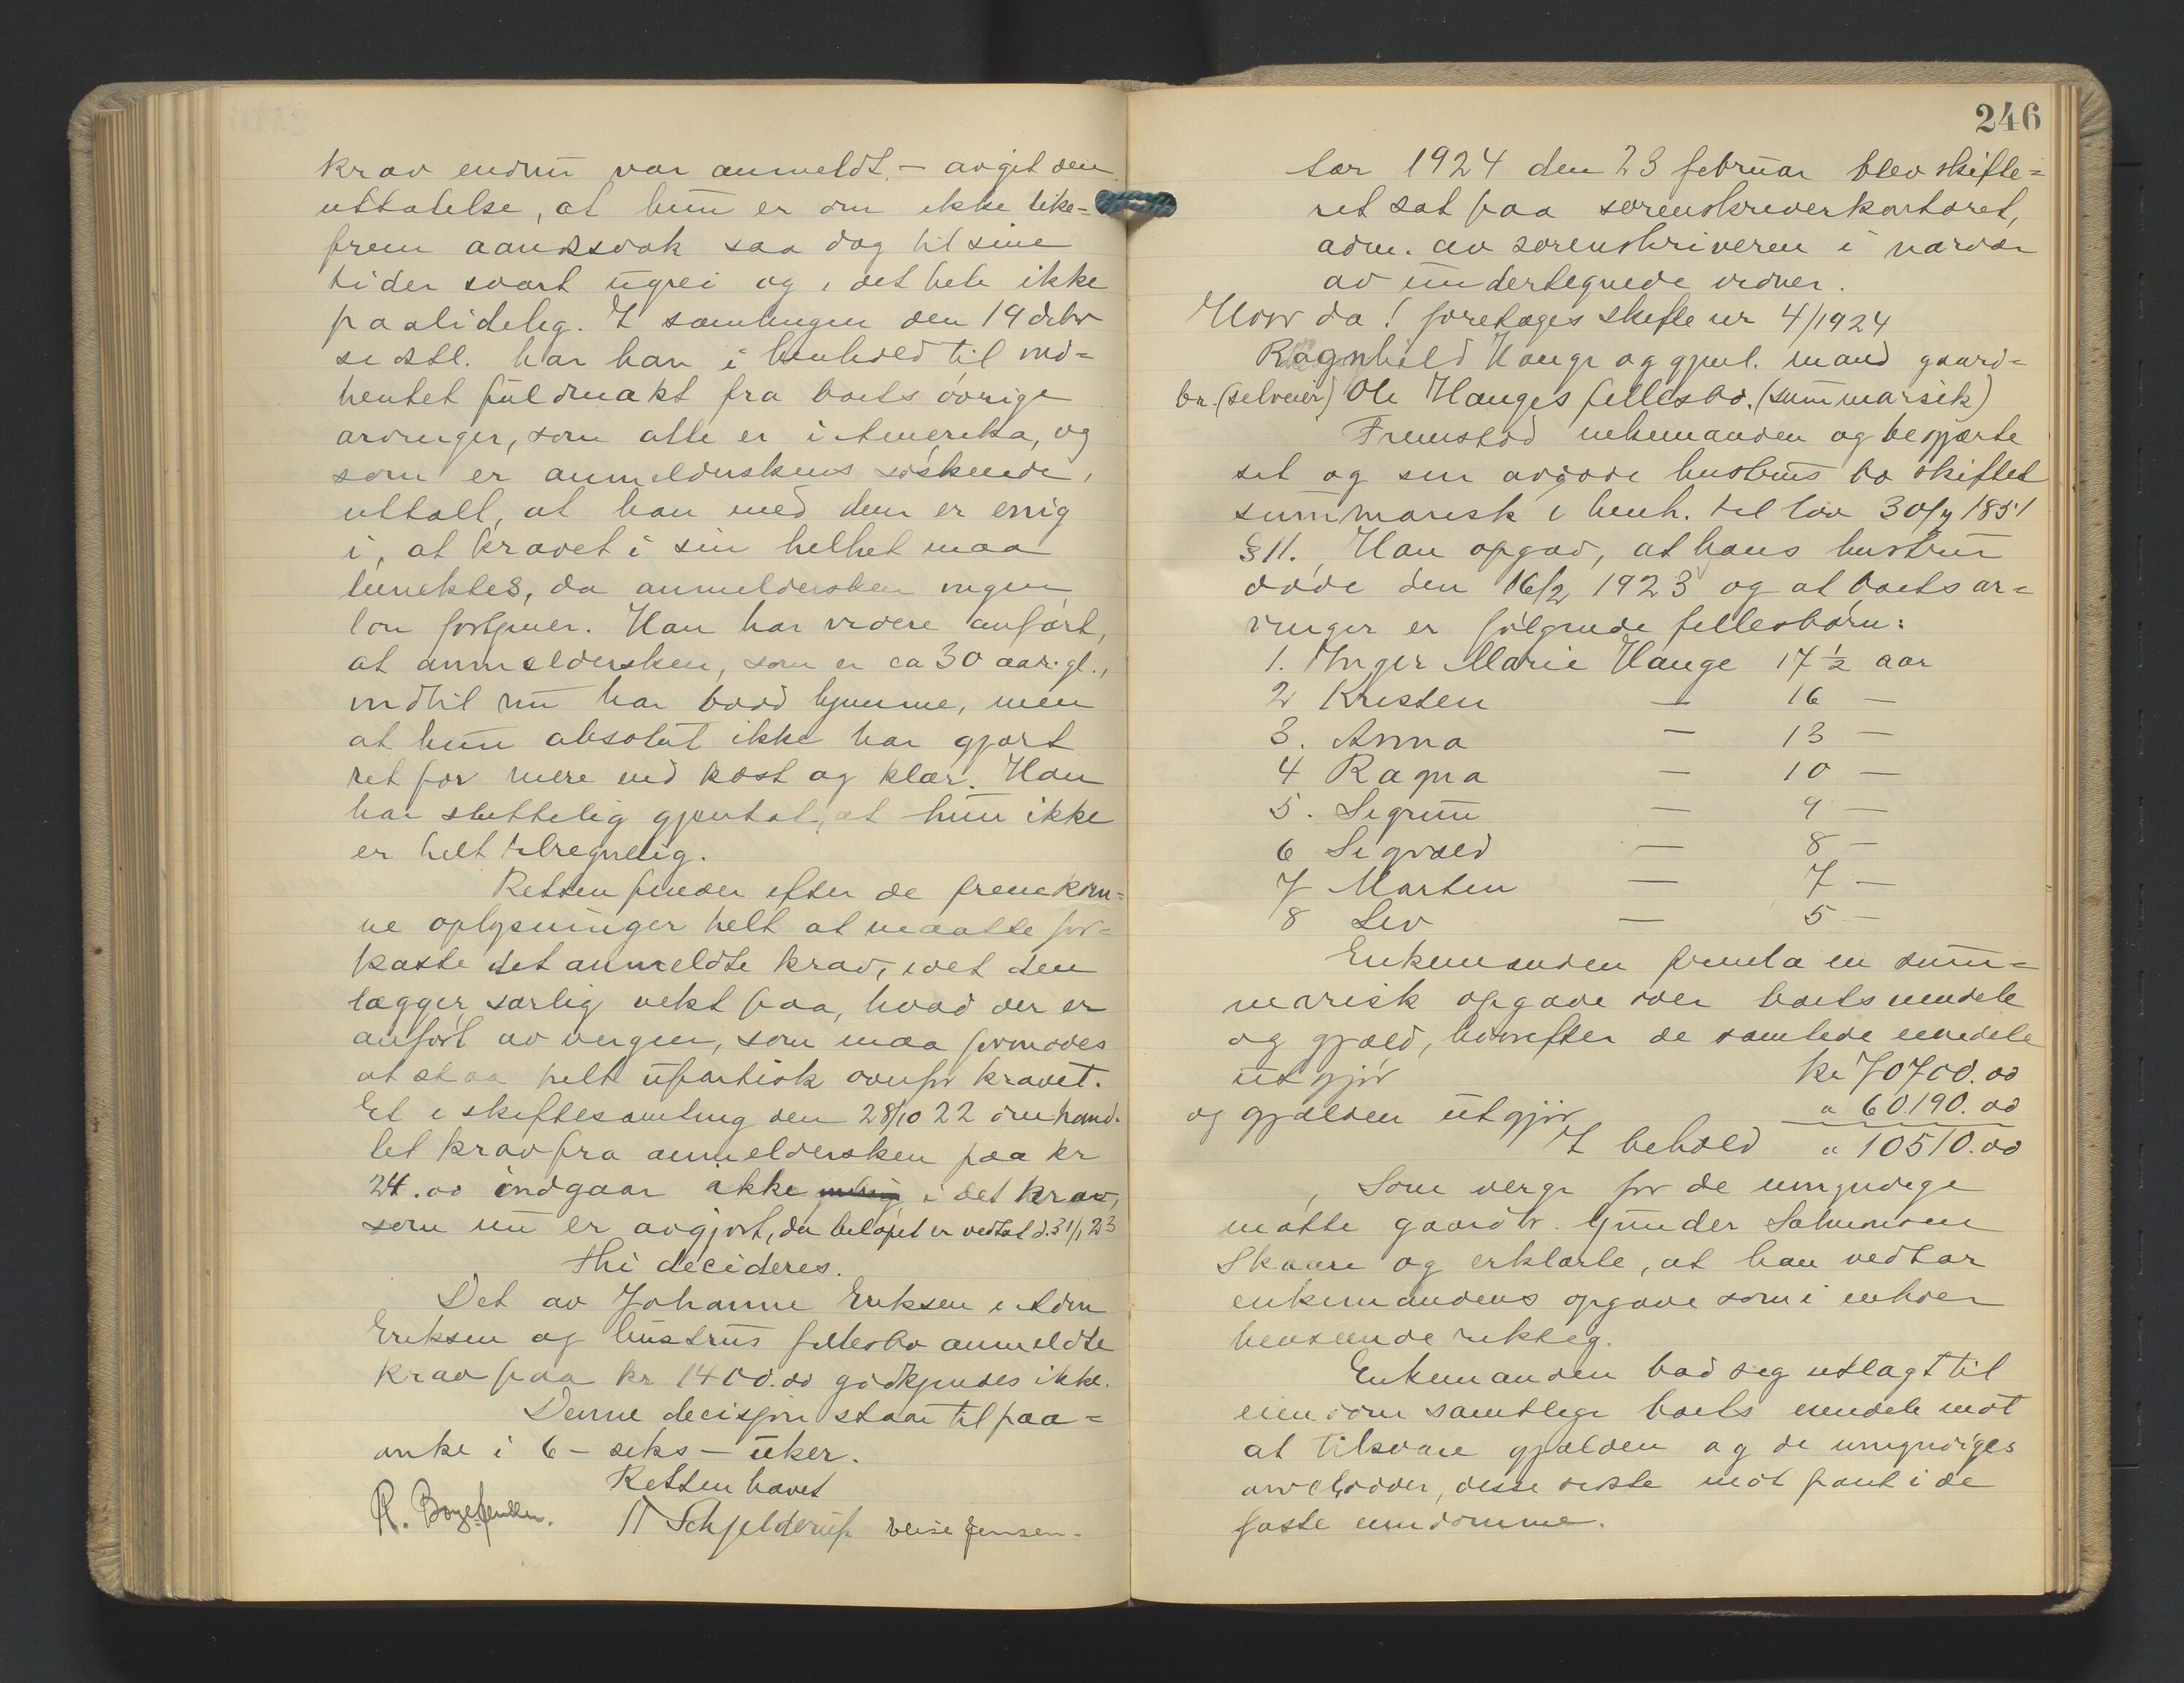 krav endnu var anmeldt, – avgit den
uttalelse, at hun er om ikke like-
frem aandssvak saa dog til sine
tider svært ugrei og i det hele ikke
paalidelig. I samlingen den 19 debr
sidstl. har han i henhold til ind-
hentet fuldmakt fra boets øvrige
arvinger, som alle er i Amerika, og
som er anmelderskens søskende,
uttalt, at han med dem er enig
i, at kravet i sin helhet maa
benektes, da anmeldersken ingen
løn fortjener. Han har videre anført,
at anmeldersken, som er ca 30 aar gl.,
indtil nu har bodd hjemme, men
at hun absolut ikke har gjort
ret for mere end kost og klær. Han
har sluttelig gjentat, at hun ikke
er helt tilregnelig.
Retten finder efter de fremkom-
ne oplysninger helt at maatte for-
kaste det anmeldte krav, idet den
lægger særlig vekt paa, hvad der er
anført av vergen, som maa formodes
at staa helt upartisk overfor kravet.
Et i skiftesamling den 28/10 22 omhand-
let krav fra anmeldersken paa kr
24.00 indgaar ikke i det krav,
som nu er avgjort, da beløpet er vedtat d. 31/1 23
Thi decideres.
Det av Johanne Eriksen i Adm
Eriksen og hustrus fellesbo anmeldte
krav paa kr 1400.00 godkjendes ikke.
Denne decisjon staar til paa-
anke i 6 – seks – uker.
Retten hævet
R. Schjelderup Jensen.
246
Aar 1924 den 23 februar blev skifte-
ret sat paa sorenskriverkontoret,
adm. av sorenskriveren i nærvær
av undertegnede vidner.
Hvor da! foretages skifte nr 4/1924
Ragnhild Hauge og gjenl. mand gaard-
br. (selveier) Ole Hauges fellesbo. (summarisk)
Fremstod enkemanden og begjærte
sit og sin avdøde hustrus bo skiftet
summarisk i henh. til lov 30/7 1851
§ 11. Han opgav, at hans hustru
døde den 16/2 1923 og at boets ar-
vinger er følgende fellesbørn:
1. Inger Marie Hauge 17 ½ aar
2 Kristen — 16 —
3. Anna — 13 —
4 Ragna — 10 —
5. Sigrun — 9 —
6 Sigvald — 8 —
7 Martin — 7 —
8 Liv — 5 —
Enkemanden fremla en sum-
marisk opgave over boets eiendele
og gjæld, hvorefter de samlede eiendele
utgjør kr 70700.00
og gjælden utgjør " 60190.00
I behold " 10510.00
Som verge for de umyndige
møtte gaardbr. Gunder Salomonsen
Skaare og erklærte, at han vedtar
enkemandens opgave som i enhver
henseende riktig.
Enkemanden bad sig utlagt til
eiendom samtlige boets eiendele mot
at tilsvare gjælden og de umyndiges
arvelodder, disse sidste mot pant i de
faste eiendomme.